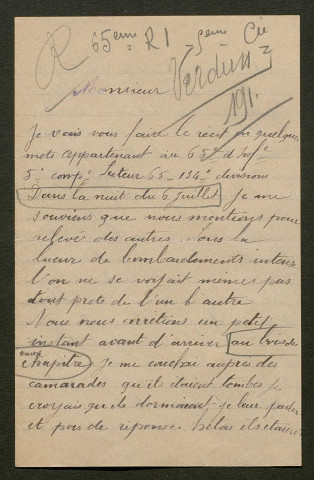 R 65eme RI 5eme Cie
Verdun
191.
Monsieur
Je vais vous faire le récit en quelques
mots appartenant au 65e d'Infie
5e compie Secteur 65 - 134e division
Dans la nuit du 6 Juillet Je me
souviens que nous montions pour
relevé des autres. Sous la
lueur de bombardements intense
l'on ne se voyait même pas
tout prets de l'un l autre
Nous nous arretions un petit
instant avant d'arriver au bois de
chapitre
Je me couchai auprès des
camarades qu'ils étaient tombés je
croyais qu'ils dormaient - je leur parlai
et pas de réponse hélas ils étaient